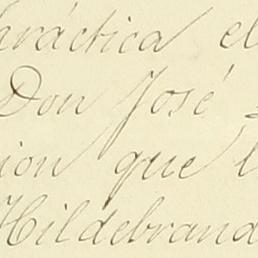 práctica el
Don José
ion que l
Hildebrand